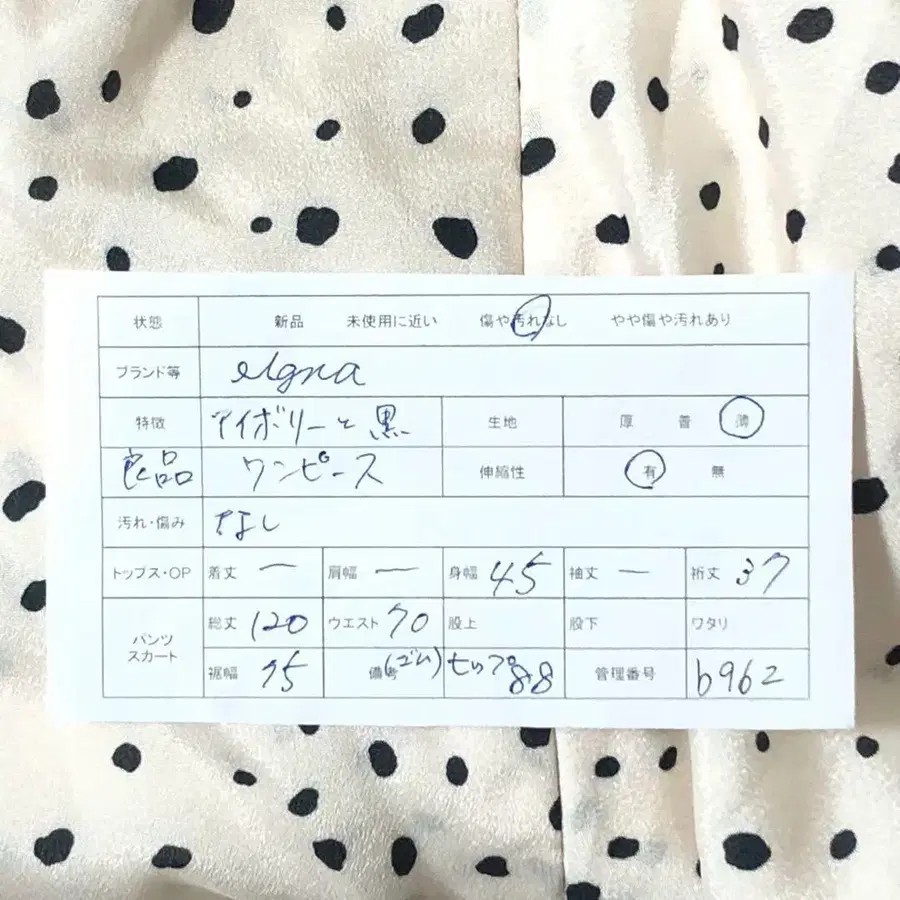 状態 新品 未使用に近い 傷や汚れなし やや傷や汚れあり
ブランド等 elgna
特徴 アイボリーと黒 生地 厚 普 薄
良品 ワンピース 伸縮性 有 無
汚れ・傷み なし
トップス・OP 着丈 ー 肩幅 ー 身幅 45 袖丈 ー 裄丈 37
パンツ スカート 総丈 120 ウエスト 70 股上 股下 ワタリ
裾幅 75 備考 (ゴム) ヒップ88 管理番号 b962